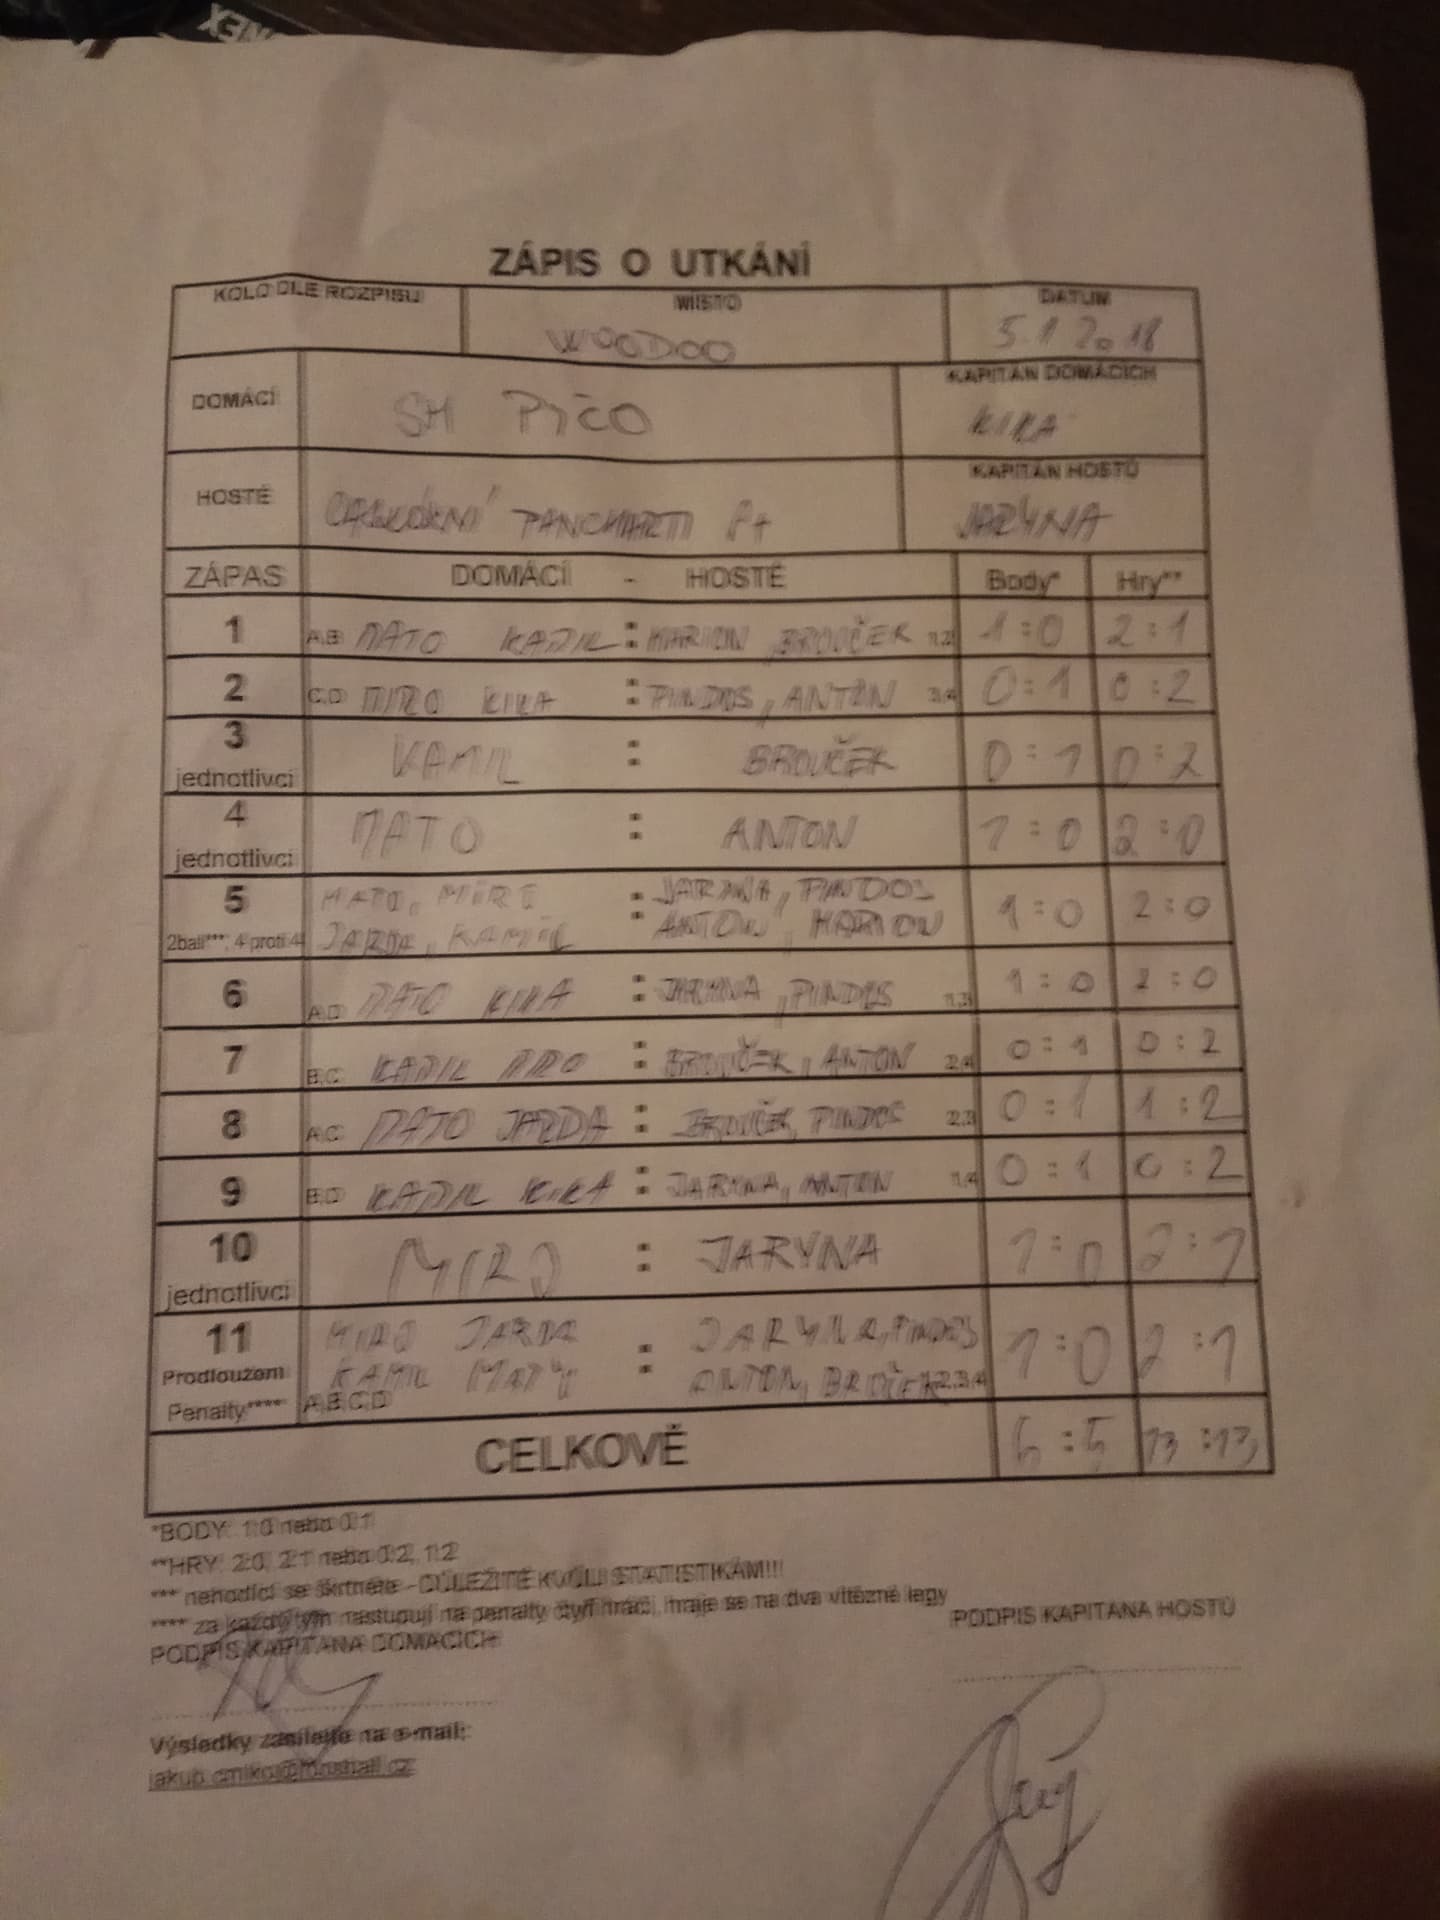 ZÁPIS O UTKÁNÍ
KOLO DLE ROZPISU MÍSTO DATUM
WOODOO 5.1 2018
DOMÁCÍ SM PÍČO KAPITÁN DOMÁCÍCH
KIKA
HOSTÉ PANCHARTI P+ KAPITÁN HOSTŮ
JARYNA
ZÁPAS DOMÁCÍ - HOSTÉ Body* Hry**
1 A,B MATO KAMIL : MARION, BROUČEK 1,2 1:0 2:1
2 C,D MIRO KIKA : PINDOS, ANTON 3,4 0:1 0:2
3 KAMIL : BROUČEK 0:1 0:2
jednotlivci
4 MATO : ANTON 1:0 2:0
jednotlivci
5 MATO, MIRO : JARYNA, PINDOS 1:0 2:0
2ball***, 4 proti 4 JARDA, KAMIL : ANTON, MARION
6 A,D MATO KIKA : JARYNA, PINDOS 1,3 1:0 2:0
7 B,C KAMIL MIRO : BROUČEK, ANTON 2,4 0:1 0:2
8 A,C MATO JARDA : BROUČEK, PINDOS 2,3 0:1 1:2
9 B,D KAMIL KIKA : JARYNA, ANTON 1,4 0:1 0:2
10 MIRO : JARYNA 1:0 2:1
jednotlivci
11 MIRO JARDA : JARYNA, PINDOS 1:0 2:1
Prodloužení KAMIL : ANTON, BROUČEK 1,2,3,4
Penalty**** A,B,C,D
CELKOVĚ 6:5 13:13
*BODY: 1:0 nebo 0:1
**HRY: 2:0, 2:1 nebo 0:2, 1:2
*** nehodící se škrtněte - DŮLEŽITÉ KVŮLI STATISTIKÁM!!!
**** za každý tým nastupují na penalty čtyři hráči, hraje se na dva vítězné legy
PODPIS KAPITÁNA DOMÁCÍCH PODPIS KAPITÁNA HOSTŮ
Výsledky zasílejte na e-mail: